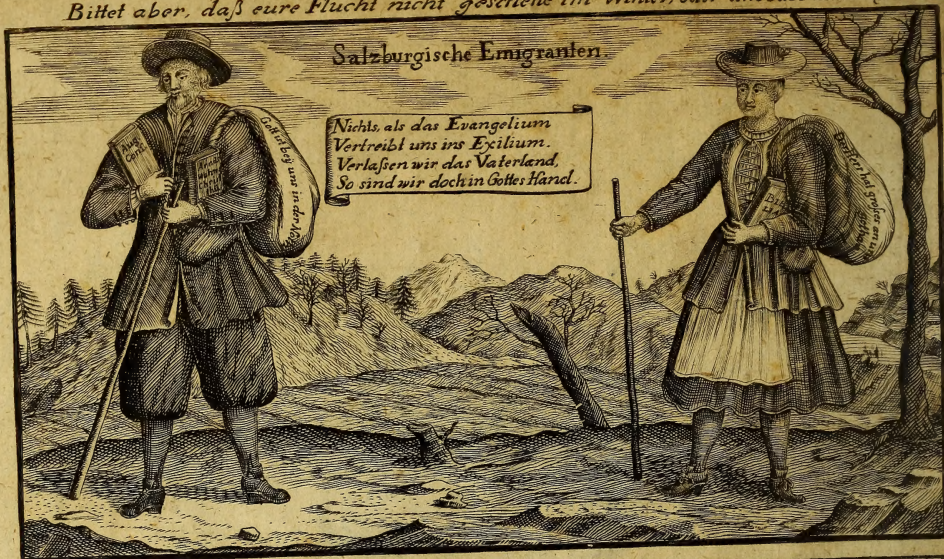 Bittet aber, daß eure Flucht nicht geschehe im Winter,
Salzburgische Emigranten.
Nichts, als das Evangelium
Vertreibt uns ins Exilium.
Verlaßen wir das Vaterland,
So sind wir doch in Gottes Hand.
Aug.
Conf.
Gott ist bey uns in der Noth
hat großes an u
gethan